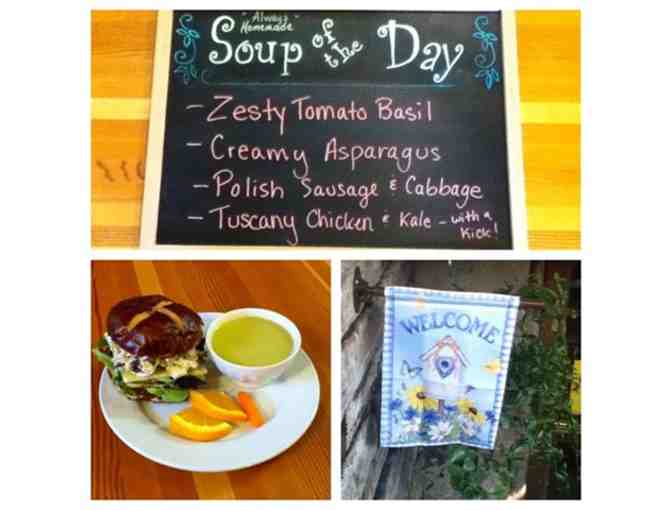 "Always"
Homemade
Soup of the Day
- Zesty Tomato Basil
- Creamy Asparagus
- Polish Sausage & Cabbage
- Tuscany Chicken & Kale - with a
Kick!
WELCOME